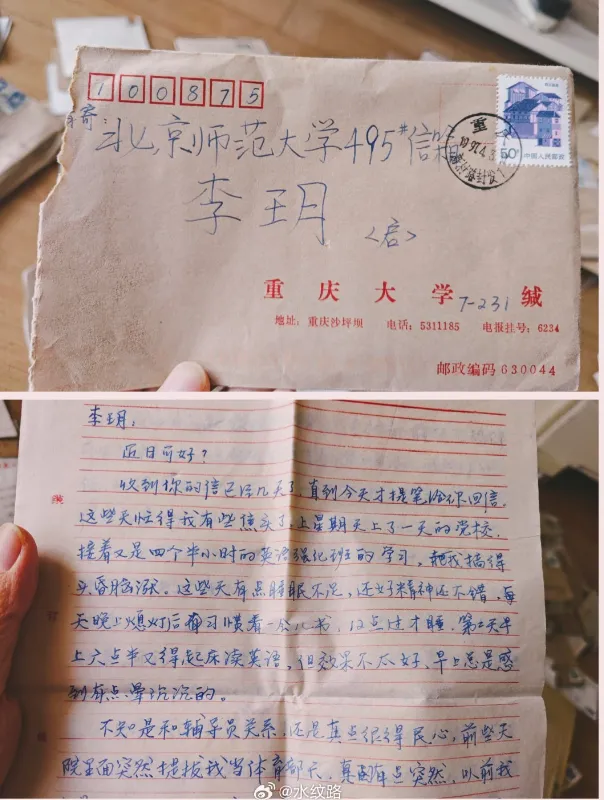 100875
寄:北京师范大学495#信箱
李玥
<启>
50分 中国人民邮政
重庆
1997.4.3
重庆大学 7-231 缄
地址:重庆沙坪坝 电话:5311185 电报挂号:6234
邮政编码 630044
李玥:
近日可好?
收到你的信已经几天了,直到今天才提笔给你回信。
这些天忙得我有些焦头了,上星期天上了一天的党校,
接着又是四个半小时的英语强化班的学习,把我搞得
头昏脑涨。这些天有点睡眠不足,还好精神还不错,每
天晚上熄灯后有习惯看一会儿书,12点过才睡,第二天早
上六点半又得起床读英语,但效果不太好,早上总是感
到有点晕沉沉的。
不知是和辅导员关系,还是真点很得民心,前些天
院里面突然提拔我当体育部长,真的有点突然,以前我
装
订
@水纹路